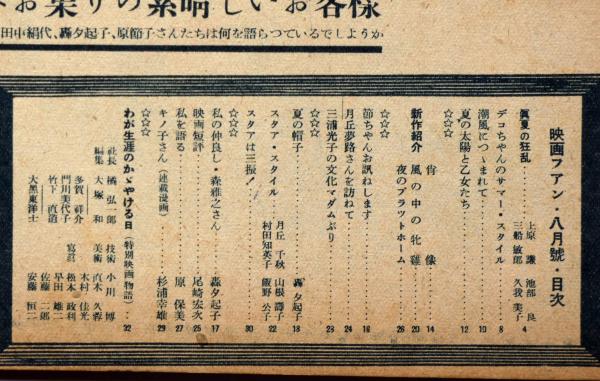 お集りの素晴しいお客様
田中絹代、轟夕起子、原節子さんたちは何を語らつているでしようか
映画フアン・八月號・目次
眞夏の狂乱 上原謙 池部良 三船敏郎 久我美子 4
デコちやんのサマー・スタイル 8
潮風につゝまれて 10
夏の太陽と乙女たち 12
☆☆☆
肖像 14
新作紹介 風の中の牝雞 20
夜のプラットホーム 26
☆☆☆
節ちやんお訊ねします 16
月丘夢路さんを訪ねて 24
三浦光子の文化マダムぶり 23
☆☆☆
夏の帽子 轟夕起子 18
スタア・スタイル 月丘千秋 山根壽子 村田知英子 飯野公子 22
スタアは三振! 30
☆☆☆
私の仲良し・森雅之さん 轟夕起子 17
映画短評 尾崎宏次 25
私を語る 原保美 27
キノ子さん(連載漫画) 杉浦幸雄 29
☆☆☆
わが生涯のかゞやける日(特別映画物語) 32
社長 橘弘一郎 技術 小川博
編集 大塚和 美術 直木久蓉
多賀祥介 木村佳光
門川美代子 寫眞 松本政利
竹下直道 早田雄二
大黒東洋士 佐藤二郎
安藤恒二